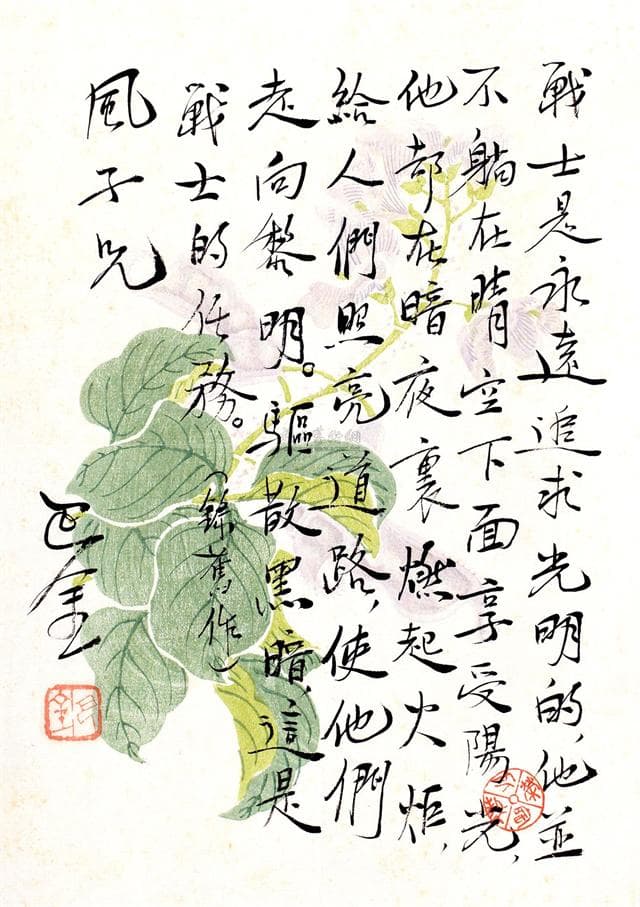 戰士是永遠追求光明的，他並
不躺在晴空下面享受陽光，
他却在暗夜裏燃起火炬，
給人們照亮道路，使他們
走向黎明。驅散黑暗，這是
戰士的任務。（錄舊作）
風子兄
巴金